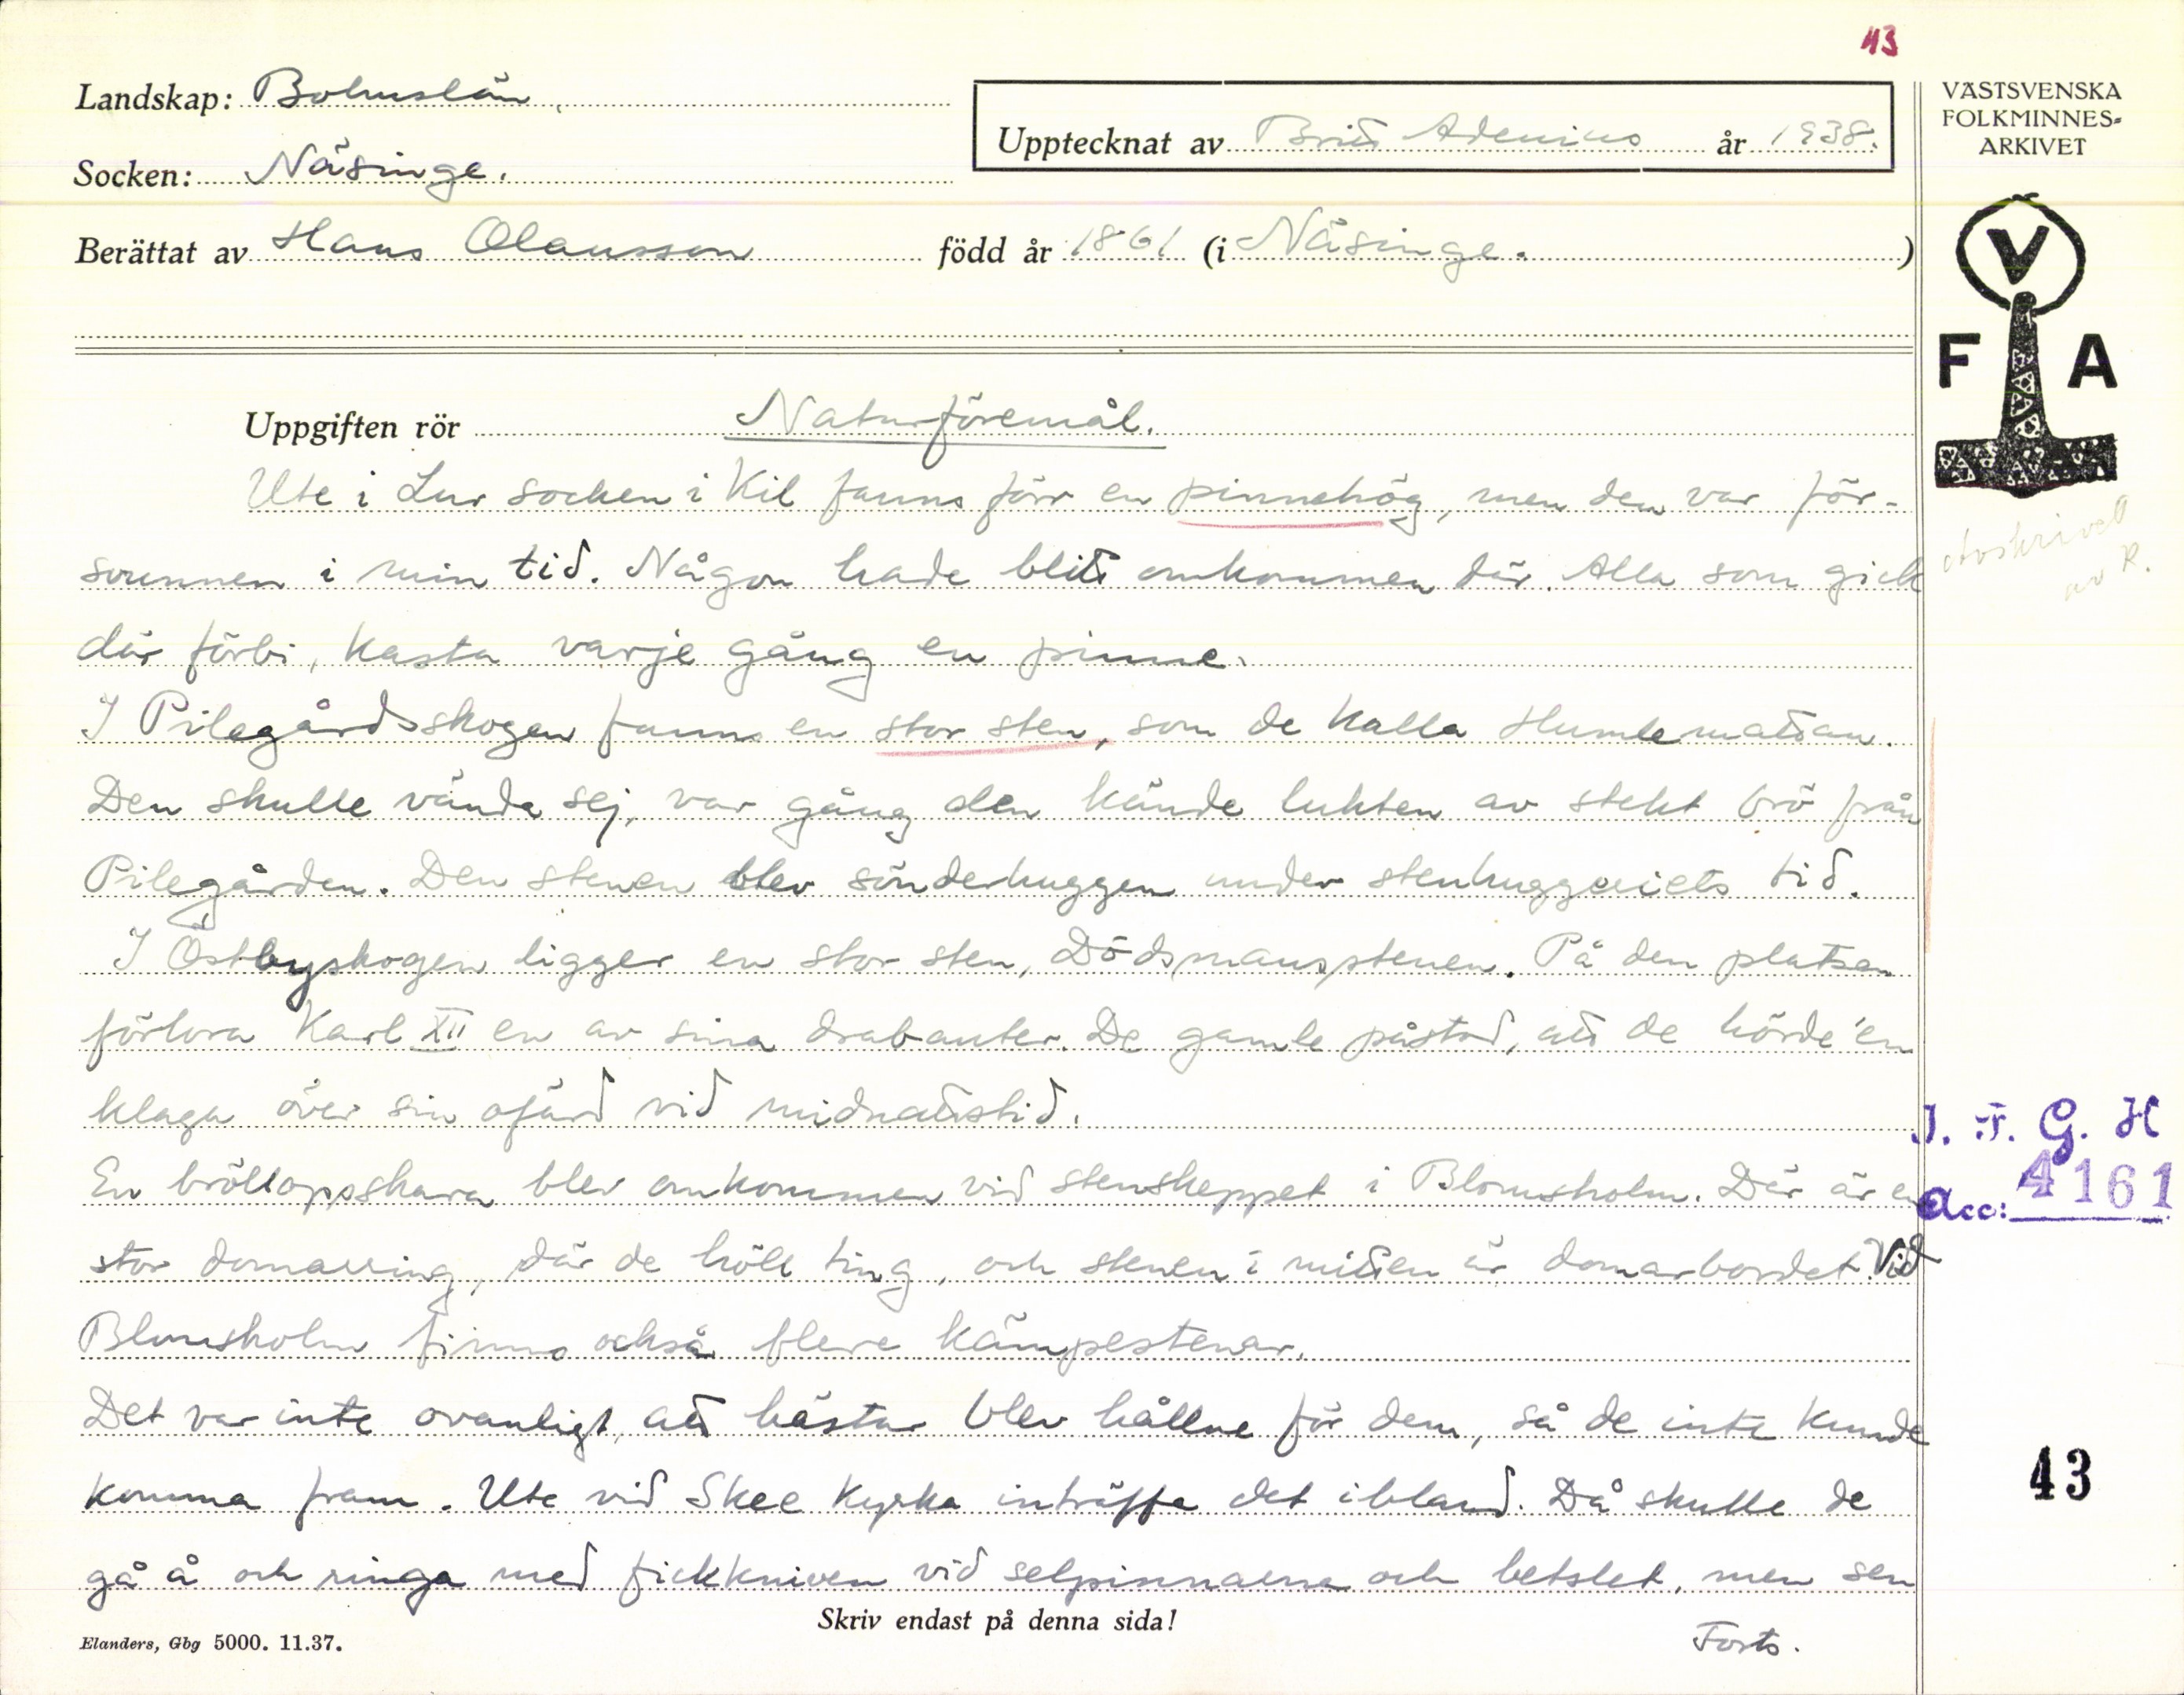 43
Landskap: Bohuslän
Upptecknat av Britt Adenius år 1938.
Socken: Näsinge.
Berättat av Hans Olausson född år 1861 (i Näsinge. )
VÄSTSVENSKA
FOLKMINNES-
ARKIVET
V
F A
Uppgiften rör Naturföremål.
Ute i Lur socken i Kil fanns förr en pinnehög, men den var för-
svunnen i min tid. Någon hade blitt omkommen där. Alla som gick
där förbi, kasta varje gång en pinne.
Avskrivet
av R.
I Pilegårdsskogen fanns en stor sten, som de kalla Humlemattan.
Den skulle vända sej, var gång den kände lukten av stekt brö från
Pilegården. Den stenen blev sönderhuggen under stenhuggeriets tid.
I Östbyskogen ligger en stor sten, Dödsmansstenen. På den platsen
förlora Karl XII en av sina drabanter. De gamle påstod, att de hörde 'en
klaga över sin ofärd vid midnattstid.
En bröllopsskara blev omkommen vid stenskeppet i Blomsholm. Där är en
stor domarring, där de höll ting, och stenen i mitten är domarbordet. Vid
Blomsholm finns också flere kämpestenar.
Det var inte ovanligt, att hästar blev hållne för dem, så de inte kunde
komma fram. Ute vid Skee kyrka inträffa det ibland. Då skulle de
gå å och ringa med fickkniven vid selpinnarna och betslet, men sen
I. F. G. H
Acc: 4161
43
Skriv endast på denna sida!
Elanders, Gbg 5000. 11.37.
Forts.